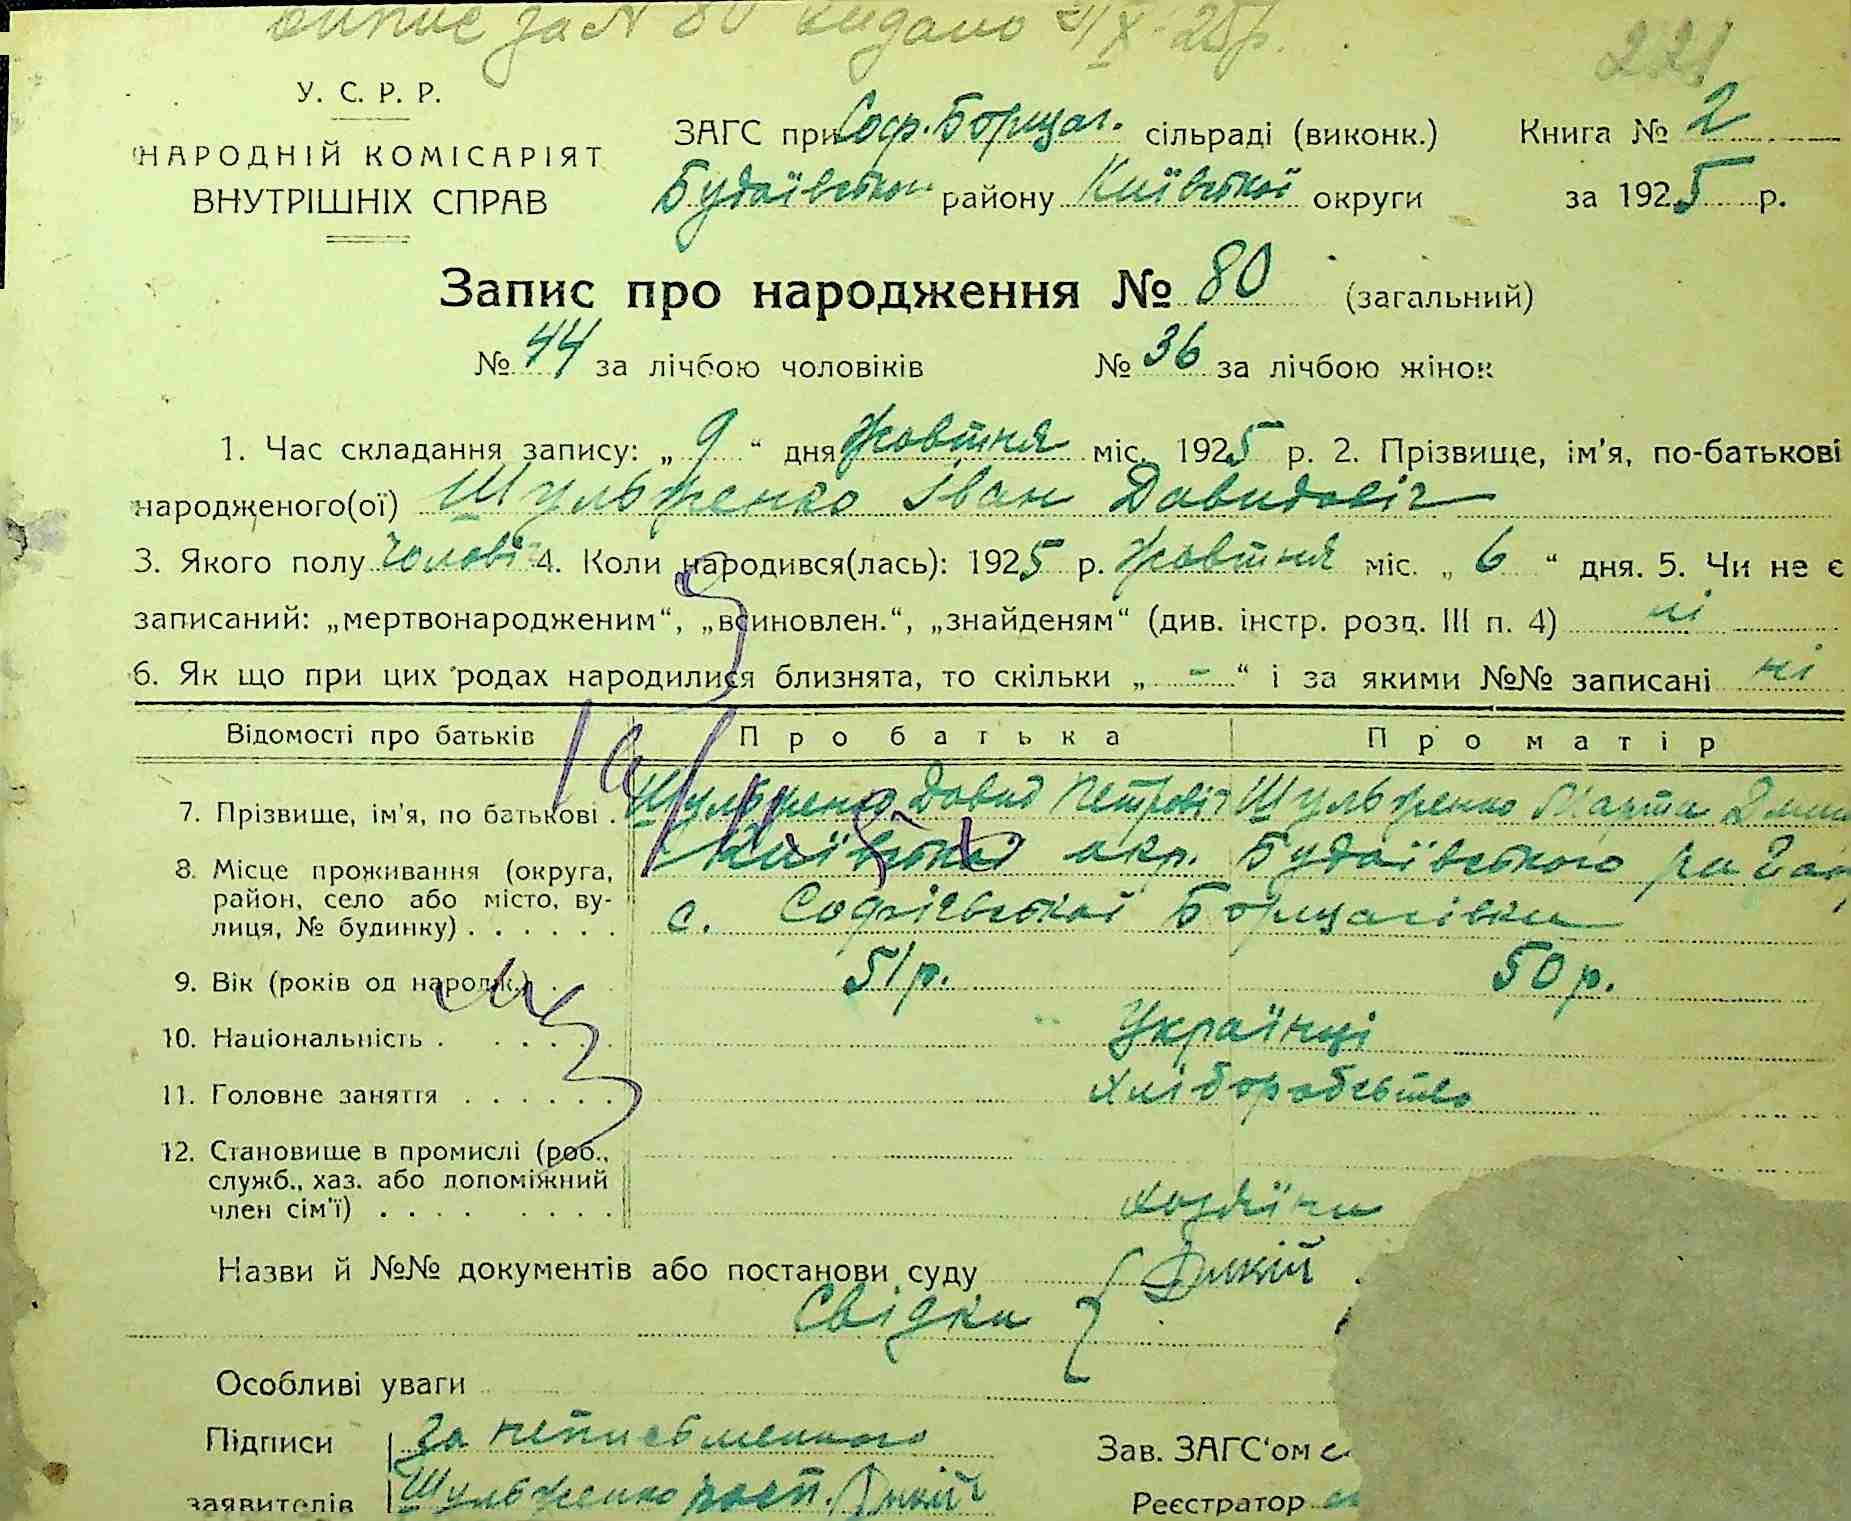 випис за № 80 видано 9/X 25 р.
221
У. С. Р. Р.
НАРОДНІЙ КОМІСАРІЯТ
ВНУТРІШНІХ СПРАВ
ЗАГС при Соф. Борщаг. сільраді (виконк.)
Будаївськ району Київської округи
Книга № 2
за 1925 р.
Запис про народження № 80 (загальний)
№ 44 за лічбою чоловіків № 36 за лічбою жінок
1. Час складання запису: „ 9 “ дня жовтня міс. 1925 р. 2. Прізвище, ім'я, по-батькові
народженого(ої) Шульженко Іван Давидовіч
3. Якого полу чолові 4. Коли народився(лась): 1925 р. жовтня міс. „ 6 “ дня. 5. Чи не є
записаний: „мертвонародженим“, „всиновлен.“, „знайденям“ (див. інстр. розд. III п. 4) ні
6. Як що при цих родах народилися близнята, то скільки „ - “ і за якими №№ записані ні
Відомості про батьків Про батька Про матір
7. Прізвище, ім'я, по батькові . Шульженко Давид Петровіч Шульженко Марта
8. Місце проживання (округа, Київської окр. Будаївського
район, село або місто, ву- с. Софіївської Борщагівки
лиця, № будинку) . . . . . .
9. Вік (років од народж.) . 51 р. 50 р.
10. Національність . . . . . . Українці
11. Головне заняття . . . . . . хліборобство
12. Становище в промислі (роб.,
служб., хаз. або допоміжний
член сім'ї) . . . . . . . . хозяїни
Назви й №№ документів або постанови суду { Дикий
Свідки
Особливі уваги
Підписи За неписьменного
Зав. ЗАГС'ом
заявителів Шульженко расп. Дикий
Реєстратор